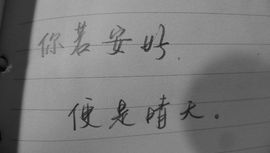 你若安好
便是晴天。